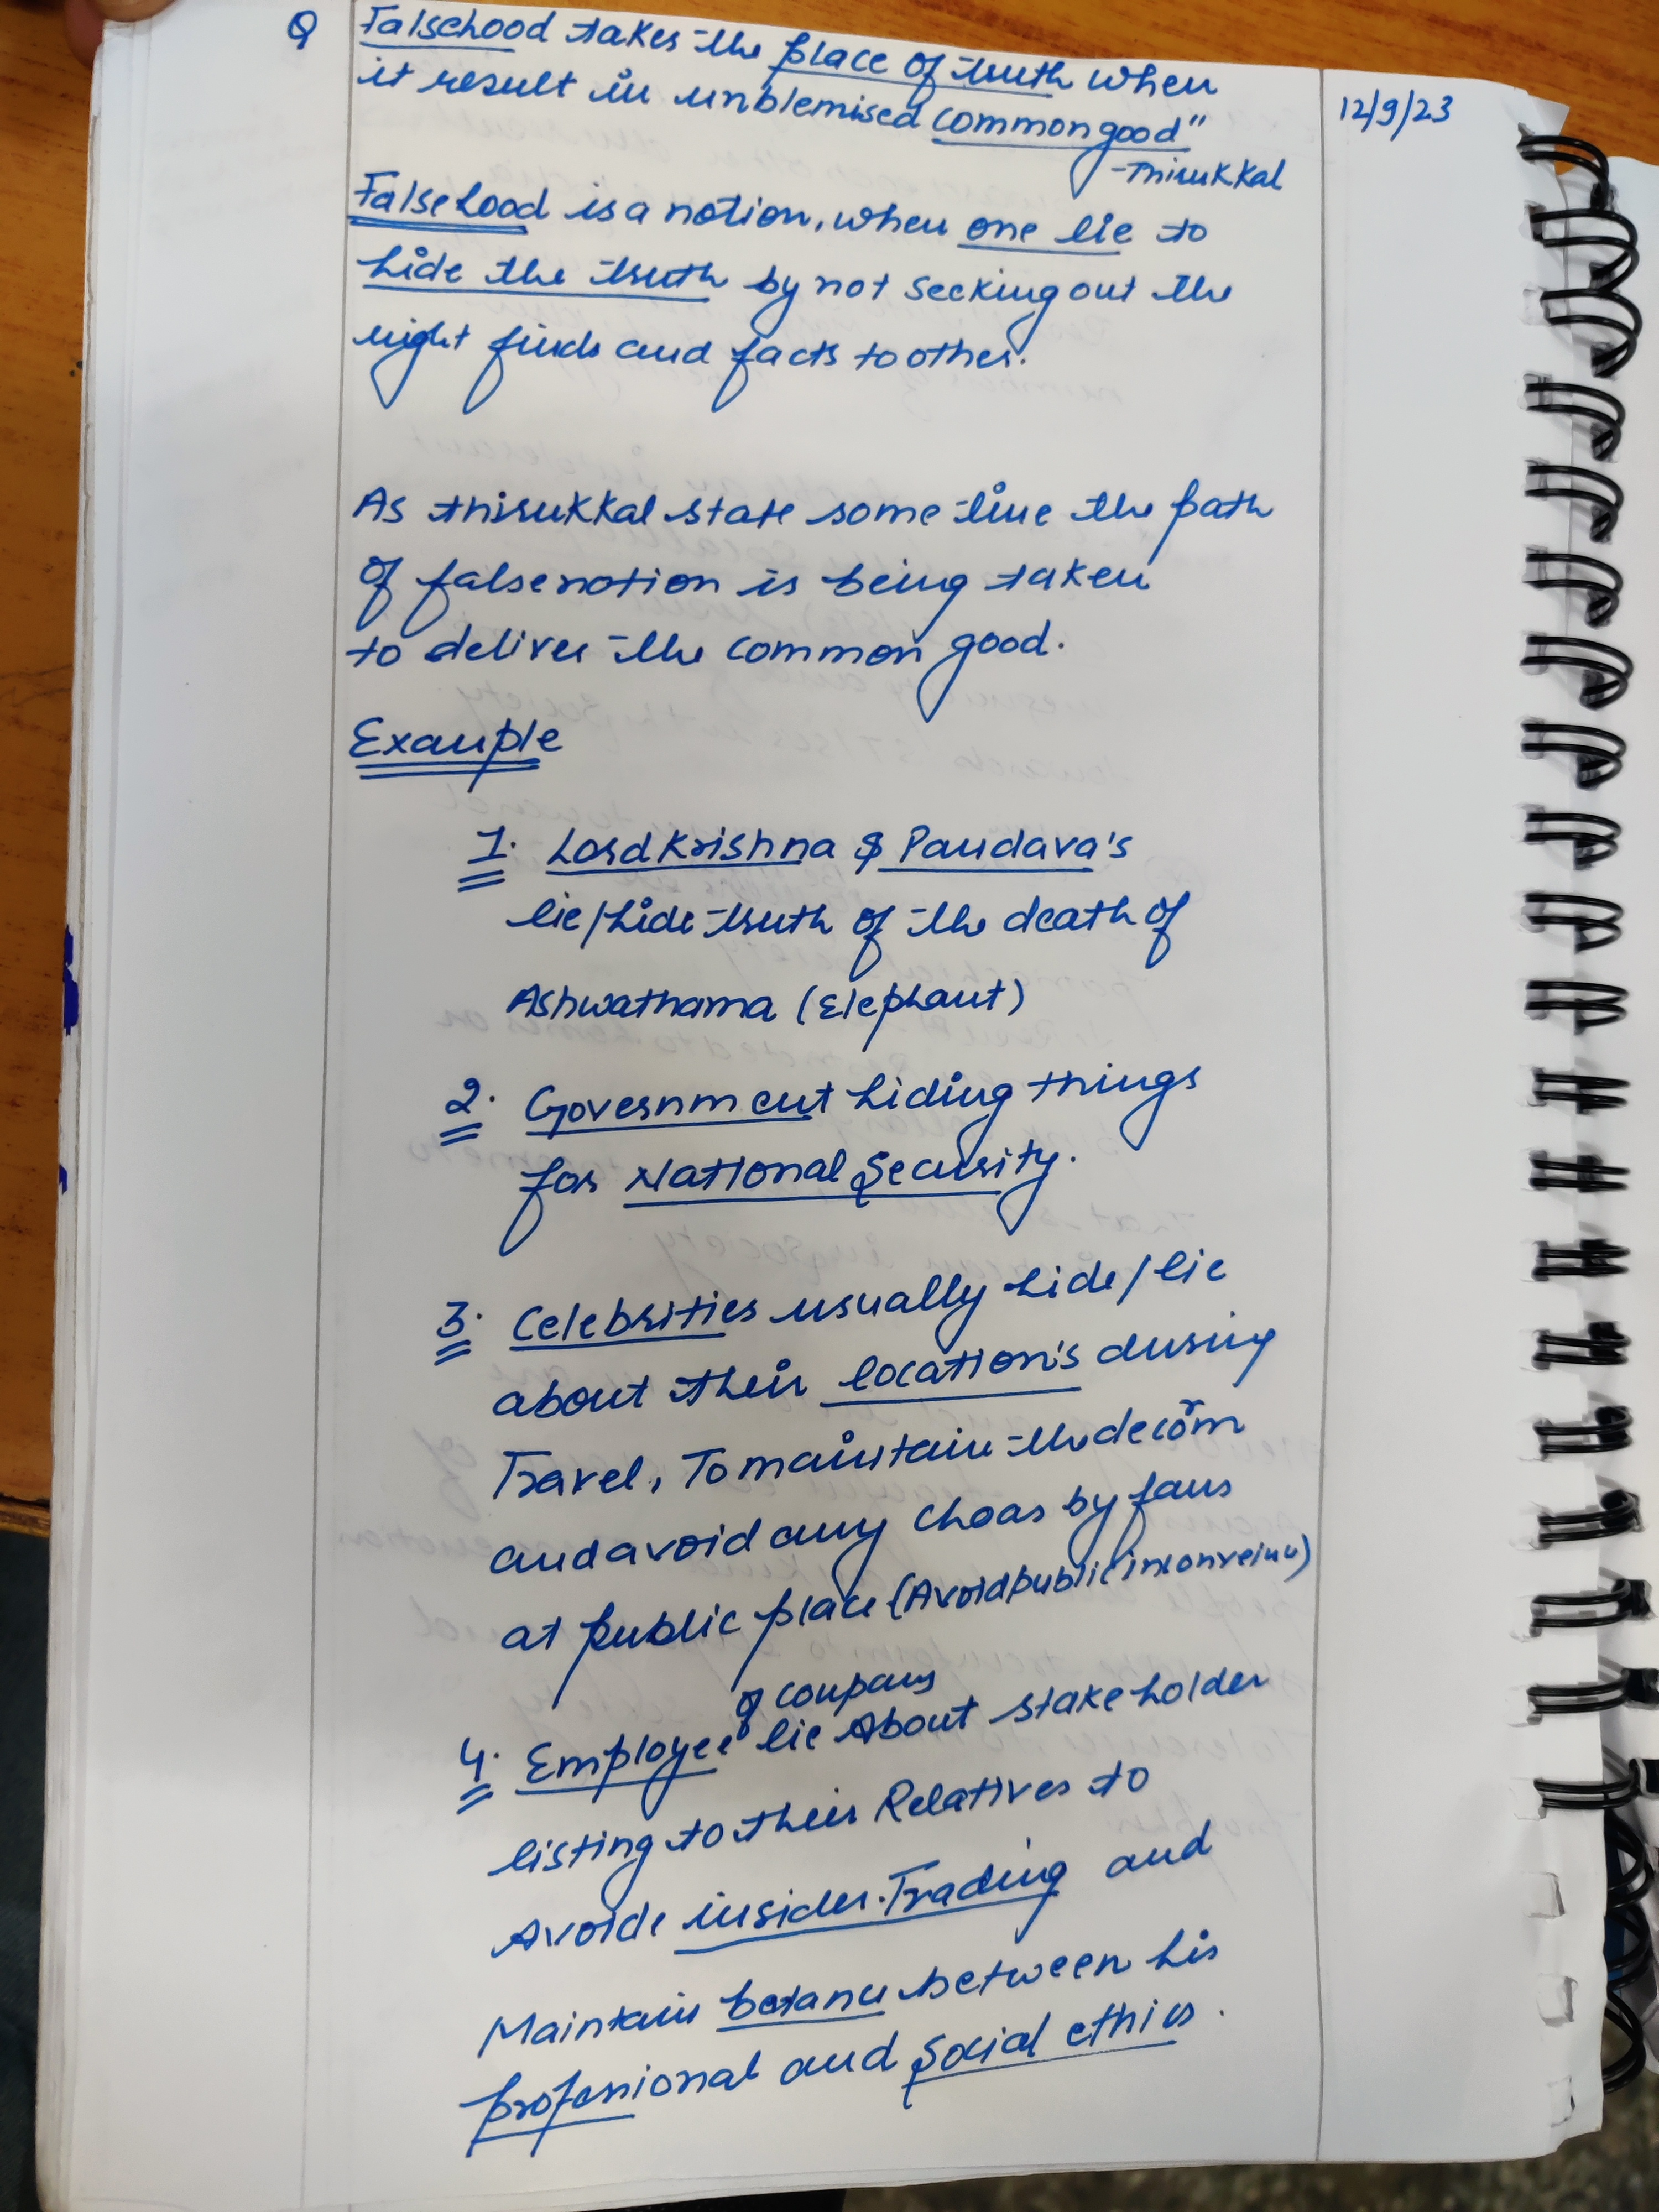 Q Falsehood takes the place of truth when
it result in unblemised common good"
12/9/23
-Thirukkal
Falsehood is a notion, when one lie to
hide the truth by not seeking out the
right finds and facts to other.
As thirukkal state some time the path
of false notion is being taken
to deliver the common good.
Example
1. Lord Krishna & Pandava's
lie/hide truth of the death of
Ashwathama (Elephant)
2. Government hiding things
for National Security.
3. Celebrities usually hide/lie
about their location's during
Travel, To maintain the decorm
and avoid any choas by fans
at public place (Avoid public inconveinu)
of company
4. Employee lie About stakeholder
listing to their Relatives to
Avoide insider Trading and
Maintain between his
professional and social ethics.